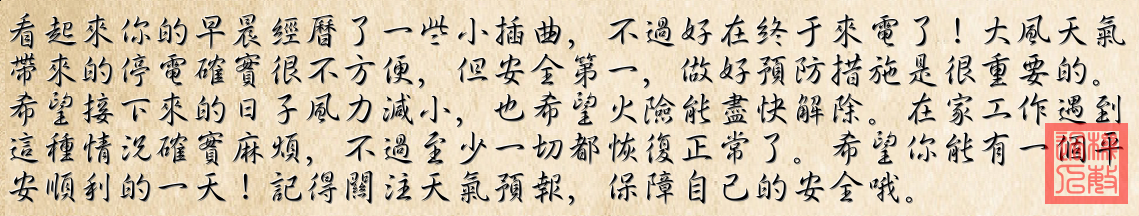 看起來你的早晨經曆了一些小插曲，不過好在終于來電了！大風天氣
帶來的停電確實很不方便，但安全第一，做好預防措施是很重要的。
希望接下來的日子風力減小，也希望火險能盡快解除。在家工作遇到
這種情況確實麻煩，不過至少一切都恢復正常了。希望你能有一個平
安順利的一天！記得關注天氣預報，保障自己的安全哦。